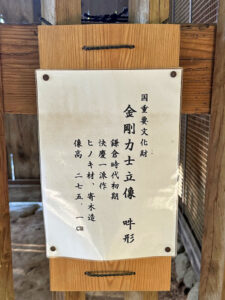 国重要文化財
金剛力士立像　吽形
鎌倉時代初期
快慶一派作
ヒノキ材、寄木造
像高　二七五．一㎝